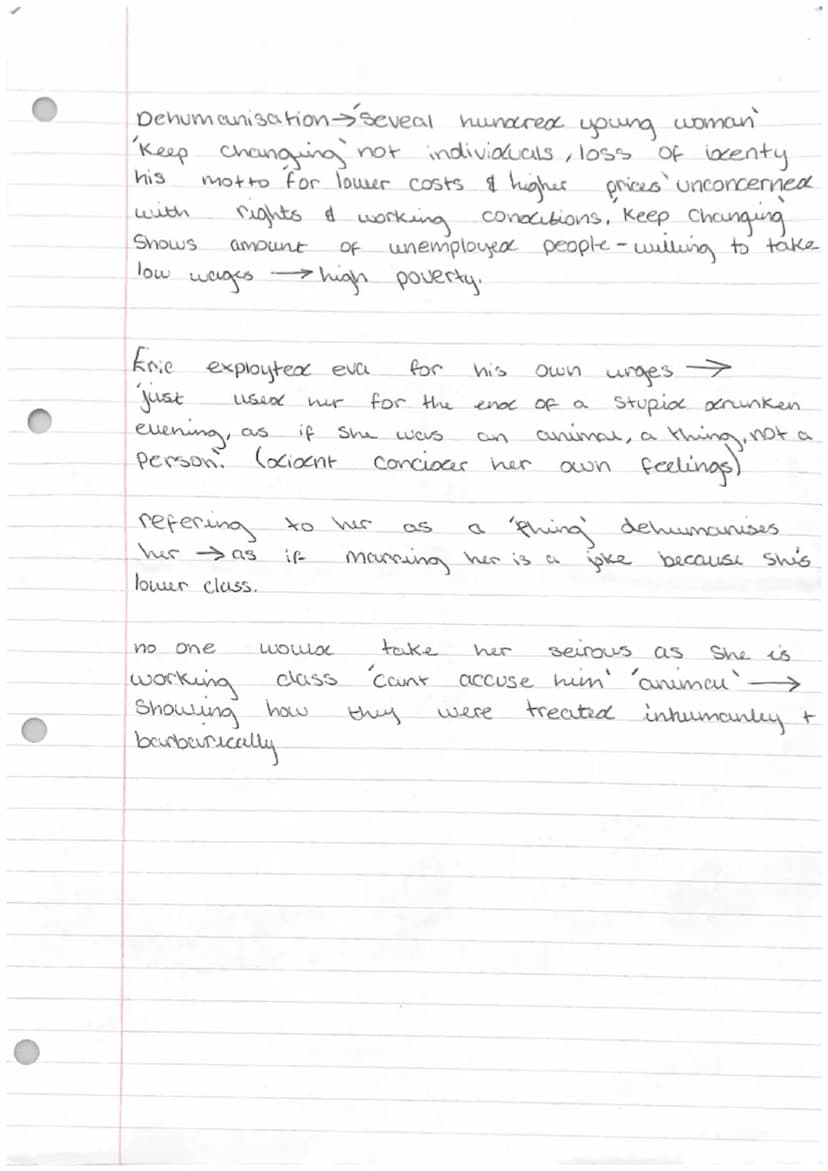 Dehumanisation → 'Seveal hundred young woman'
'Keep changing' not individuals, loss of identy
his motto 'for lower costs & higher prices' unconcerned
with rights & working conditions, 'Keep Changing'
Shows amount of unemployed people - willing to take
low wages → high poverty.
Eric exployted eva for his own urges →
'just used her for the end of a stupid drunken
evening, as if she was an animal, a thing, not a
person'. (didnt concider her own feelings)
refering to her as a 'thing' dehumanises
her → as if marrying her is a joke because shis
lower class.
no one would take her seirous as she is
working class 'cant accuse him' 'animal' →
Showing how they were treated inhumanley +
barbarically